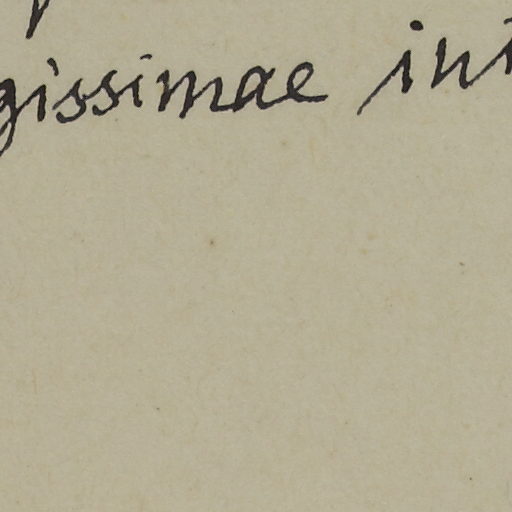 gissimae int